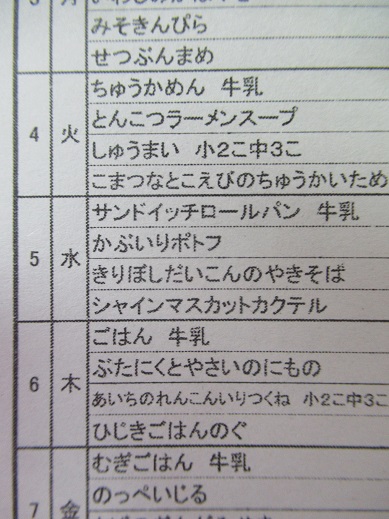 みそきんぴら
せつぶんまめ
4 火 ちゅうかめん 牛乳
とんこつラーメンスープ
しゅうまい 小2こ中3こ
こまつなとこえびのちゅうかいため
5 水 サンドイッチロールパン 牛乳
かぶいりポトフ
きりぼしだいこんのやきそば
シャインマスカットカクテル
6 木 ごはん 牛乳
ぶたにくとやさいのにもの
あいちのれんこんいりつくね 小2こ中3こ
ひじきごはんのぐ
7 金 むぎごはん 牛乳
のっぺいじる